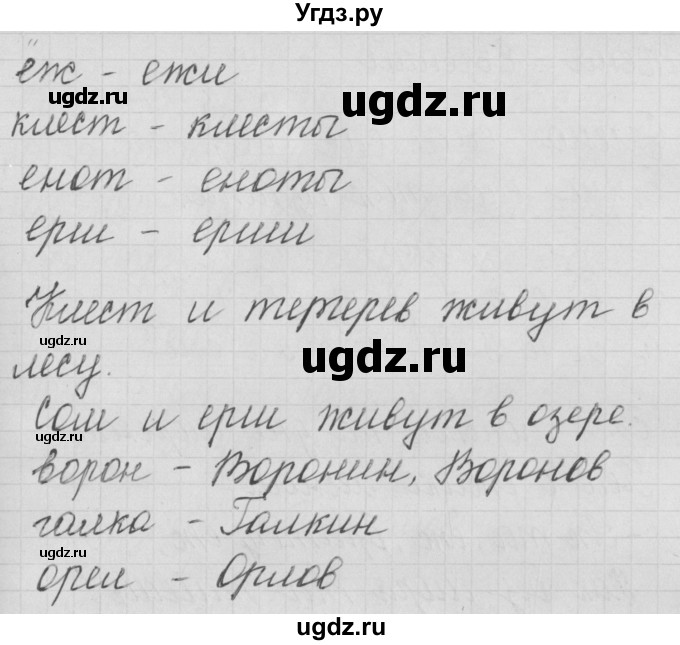 Угдз.ру
ёж - ежи
ugdz.ru
ugdz.ru
клест - клесты
енот - еноты
ugdz.ru
ерш - ерши
Клест и тетерев живут в
ugdz.ru
ugdz.ru
лесу.
Сом и ерш живут в озере.
ugdz.ru
ворон - Воронин, Воронов
галка - Галкин
ugdz.ru
орел - Орлов
ugdz.ru